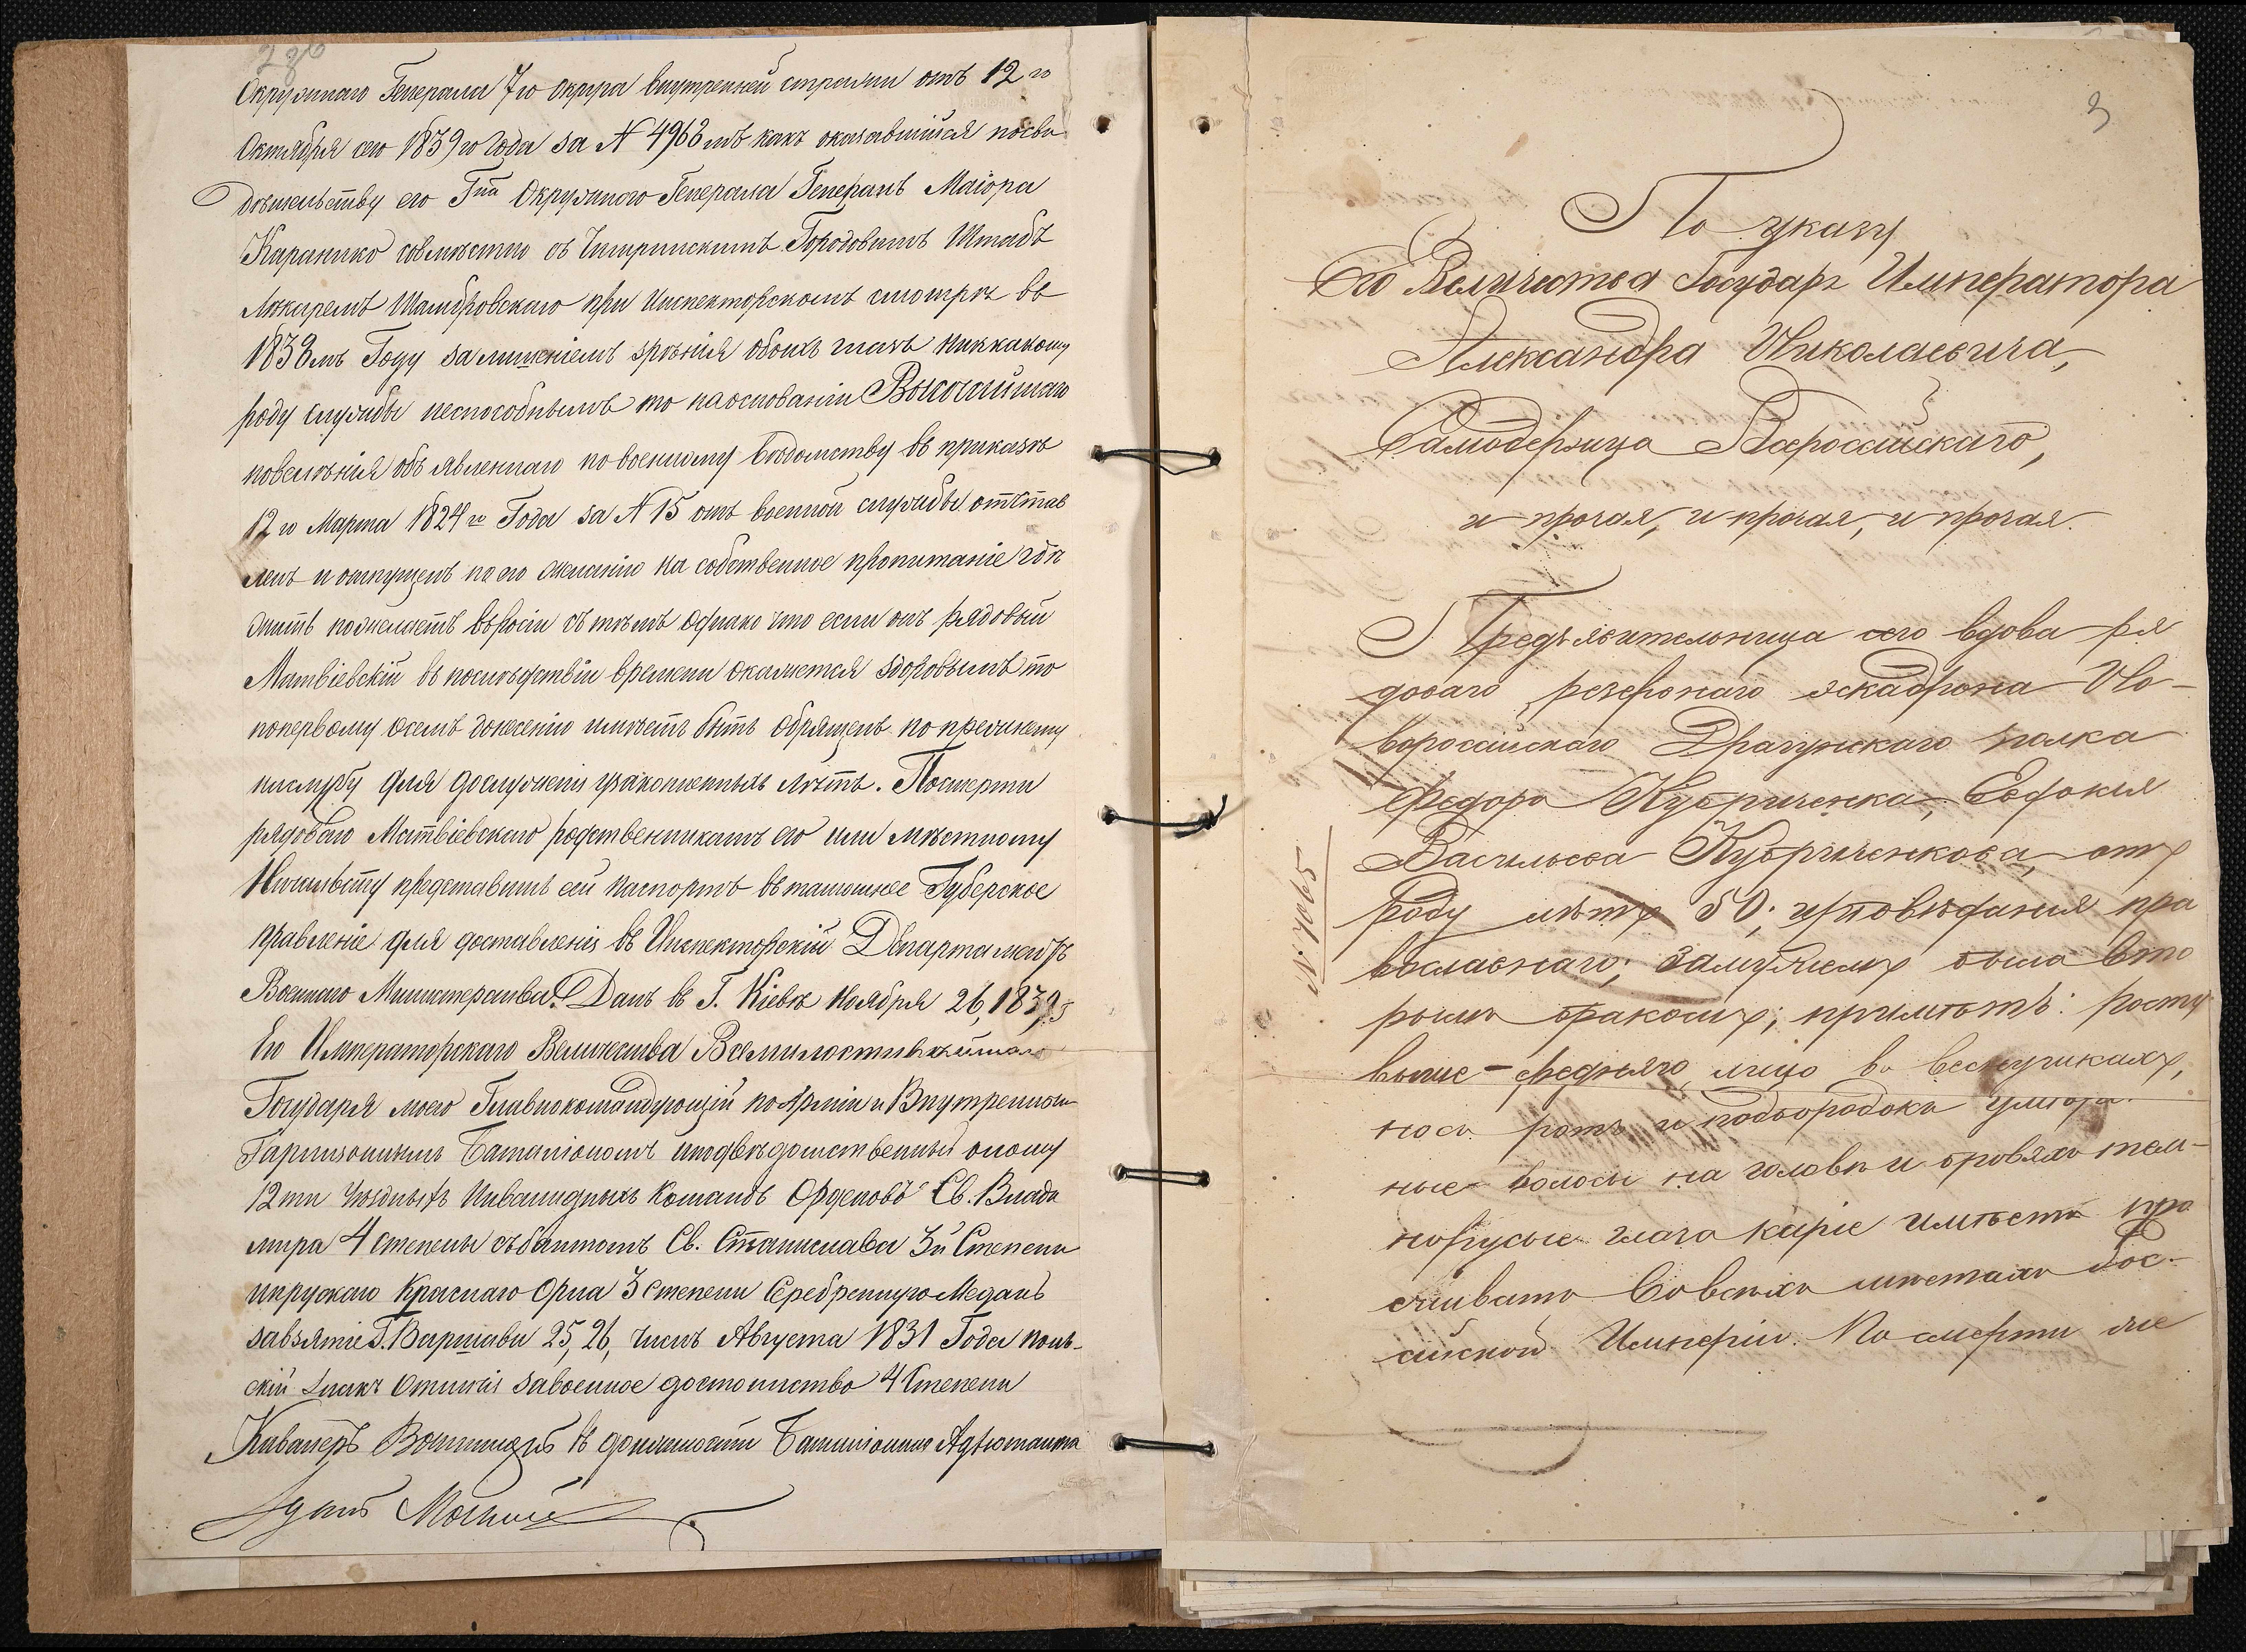 2об
Окружнаго Генерала 7го округа внутренней стражи отъ 12го
Октября сего 1839го Года за N 4963мъ какъ оказавшійся посви
дѣтельству его Гна Окружного Генерала Генералъ Маіора
совмѣстно съ Городовымъ Штабъ
Лѣкаремъ при Инспекторскомъ смотрѣ въ
1838мъ Году залишеніемъ зрѣнія обоихъ глазъ никкакому
роду службы неспособнымъ то наоснованіи Высочайшаго
повелѣнія объявленнаго повоенному вѣдомству въ приказѣ
12го Марта 1824го Года за N 15 отъ военной службы отстав
ленъ и отпущенъ по его желанію на собственное пропитаніе гдѣ
жить пожелаетъ въРосіи съ тѣмъ однако что если онъ рядовый
Матвіевскій въ послѣдствіи времени окажется здоровымъ то
попервому осемъ донесенію имѣетъ быть обращенъ попрежнему
наслужбу для дослуженія узаконенныхъ лѣтъ. Посмерти
рядоваго Матвіевскаго родственникамъ его или мѣстному
Начальству представить сей паспортъ въ тамошнее Губерское
правленіе для доставленія въ Инспекторскій Департаментъ
Военнаго Министерства. Данъ въ Г. Кіевѣ Ноября 26, 1839
Его Императорскаго Величества Всемилостивѣйшаго
Государя моего Главнокомандующій по Арміи и Внутреннимъ
Гарнизоннымъ Баталіономъ иподвѣдомственный оному
12ти Уѣздныхъ Инвалидныхъ Командъ Орденовъ Св. Влади
мира 4 степени събантомъ Св. Станислава 3й Степени
ипрускаго Краснаго Орла 3 степени Серебренную Медаль
завзятіе Г. Варшавы 25, 26, числъ Августа 1831 Года поль-
скій Знакъ Отличія завоенное достоинство 4 Степени
Кавалеръ въ должности Баталіоннаго Адъютанта
3
По указу
Его Величества Государя Императора
Александра Николаевича,
Самодержца Всероссійскаго,
и прочая, и прочая, и прочая.
Предъявительница сего вдова ря
доваго резервнаго эскадрона Но-
вороссійскаго Драгунскаго полка
Федора Кубриченка, Евдокия
Васильева Кубриченкова, отъ
роду лѣтъ 50; исповѣдания пра
вославнаго; замужемъ была вто
рымъ бракомъ; примѣтъ: росту
выше-средняго, лицо въ веснушкахъ,
носъ ротъ и подбородокъ умѣрен
ные волосы на головѣ и бровяхъ тем-
норусые глаза каріе имѣетъ про
живать вовсѣхъ мѣстахъ Рос-
сійской Имперіи. По смерти же
№ 7065